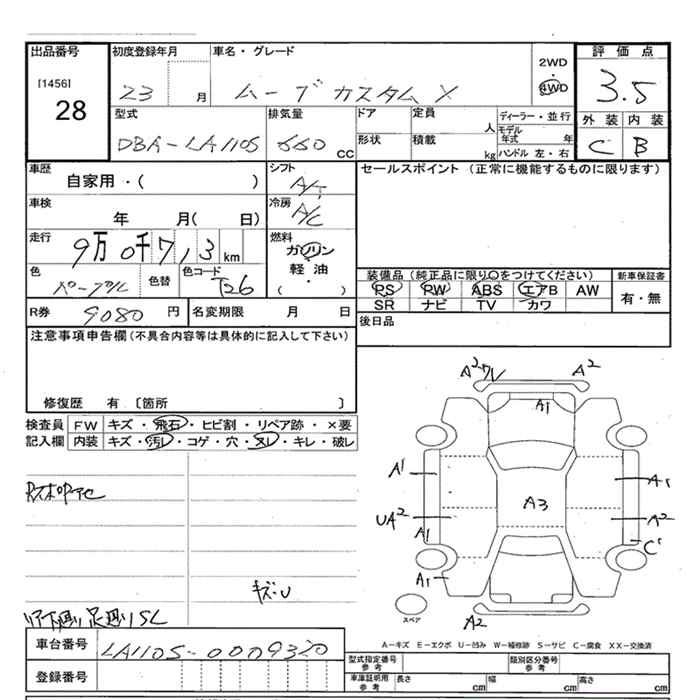 出品番号 初度登録年月 車名・グレード 評価点
[1456] 28 23 月 ムーブカスタム X 2WD 4WD 3.5
型式 排気量 ドア 定員 人 ディーラー・並行 外装 内装
DBA-LA110S 660 CC 形状 積載 kg モデル年式 年 ハンドル 左・右 C B
車歴 自家用・( ) シフト A/T セールスポイント (正常に機能するものに限ります)
車検 年 月( 日) 冷房 A/C
走行 9万0千7,3 km 燃料 ガソリン
軽油・
( )
色 パープル 色替 色コード T26 装備品 (純正品に限り○をつけてください) 新車保証書
PS PW ABS エアB AW 有・無
SR ナビ TV カワ
R券 9080 円 名変期限 月 日 後日品
注意事項申告欄(不具合内容等は具体的に記入して下さい)
修復歴 有 〔箇所 〕
検査員 FW キズ・飛石・ヒビ割・リペア跡・×要
記入欄 内装 キズ・汚レ・コゲ・穴・スレ・キレ・破レ
A2 ワレ A2
A1
A1 A1
A3
UA2 A2
A1 C1
A1
キズ・U
スペア
A2
リア下廻り足廻りSC
A-キズ E-エクボ U-凹み W-補修跡 S-サビ C-腐食 XX-交換済
車台番号 LA110S-0009320
型式指定番号 参考 類別区分番号 参考
登録番号 車庫証明用 参考 長さ cm 幅 cm 高さ cm